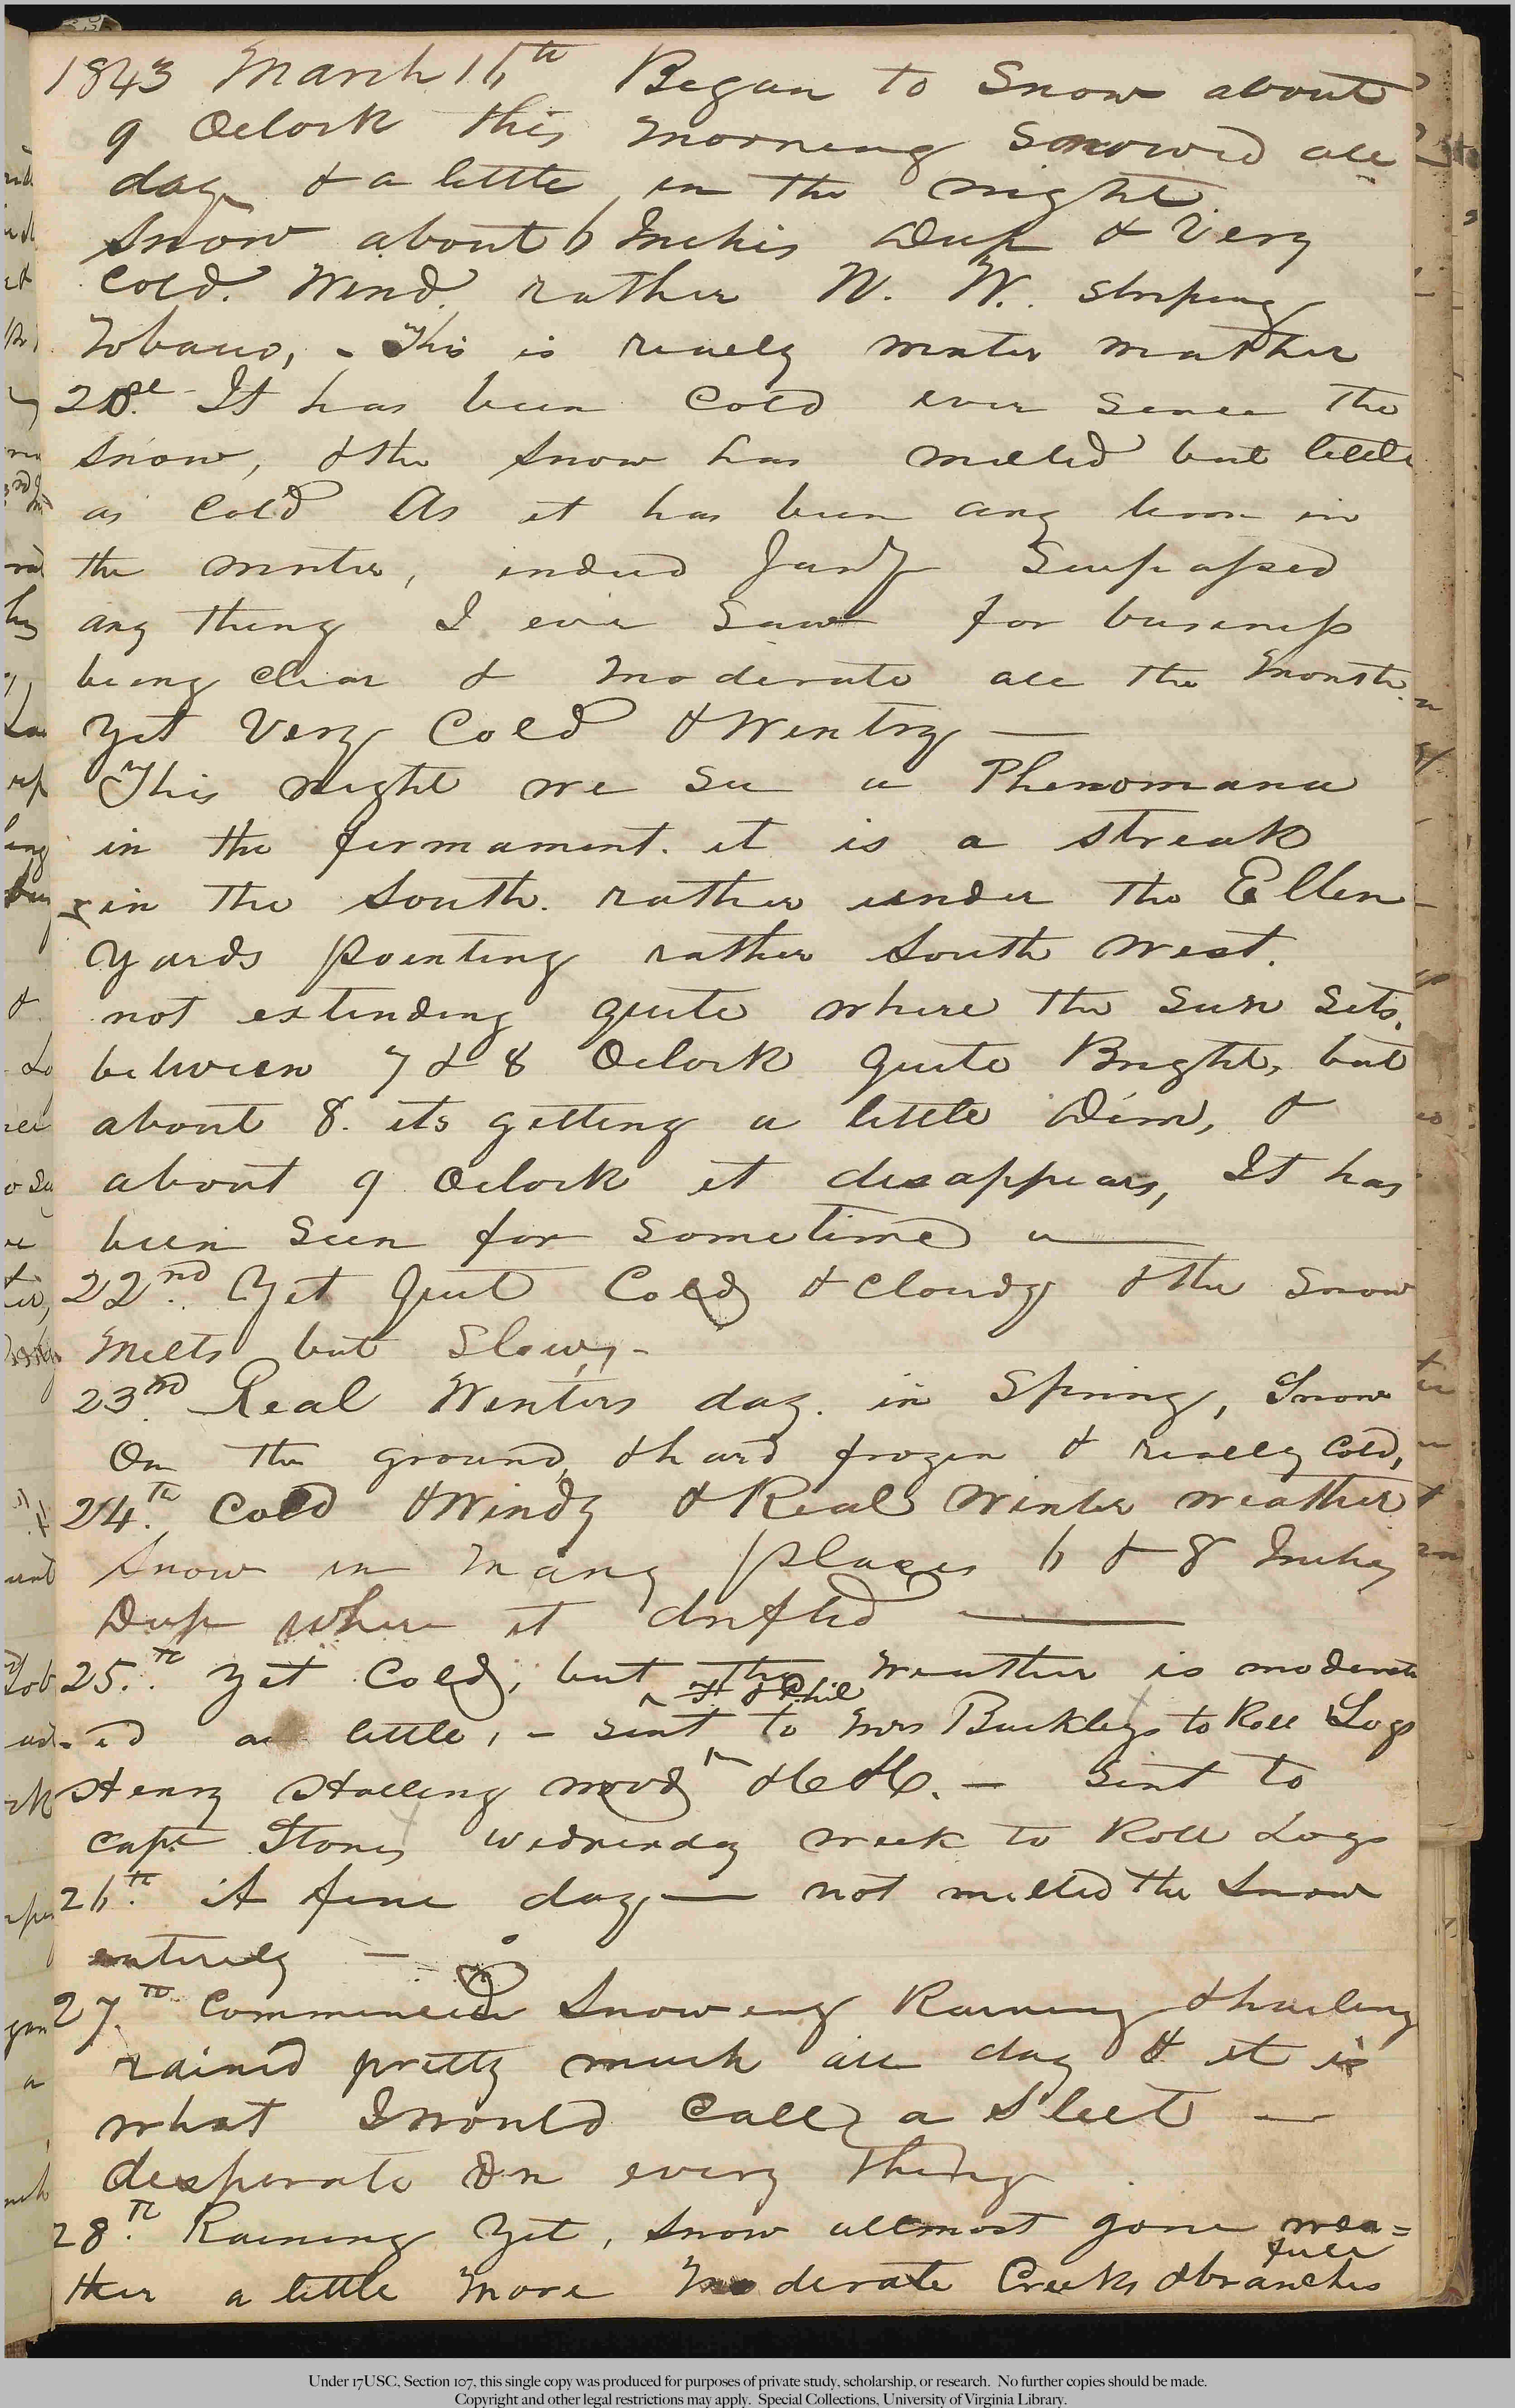 1843 March 16th Began to Snow about
9 Oclock this morning Snowed all
day & a little in the night
Snow about 6 Inches Deep & Very
Cold. Wind rather N. W. striping
Tobacco, - This is really winter weather
21st It has been Cold ever Since the
Snow, & the Snow has melted but little
as Cold As it has been any time in
the winter, indeed Jany Surpassed
any thing I ever Saw for business
being clear & moderate all the month.
yet Very Cold & Wintry —
This night we See a Phenomana
in the firmament. it is a streak
in the South. rather under the Ellen-
yards pointing rather South west.
not extending quite where the Sun Sets.
between 7 & 8 Oclock quite Bright, but
about 8. its getting a little Dim, &
about 9 Oclock it disappears, It has
been Seen for sometime
22nd. Yet quit Cold & Cloudy & the Snow
melts but Slowy -
23nd. Real Winters day. in Spring, Snow
On the ground, & hard frozen & really Cold,
24.th Cold & Windy & Real Winter weather
Snow in many places 6 & 8 Inches
Deep where it drifted —
25.th yet Cold, but the Weather is moderat-
& Phil
ed a little, - Sent to Mrs Buckleys to Roll Logs
Henry Stalling — Sent to
Capt Stones Wednesday week to Roll Logs
26.th A fine day — not melted the Snow
entirely —
27.th Commenced Snowing Raining & hailing
rained pretty much all day & it is
what I would Call a Sleet —
desperate On every thing
28.th Raining Yet, Snow allmost gone wea=
full
ther a little more moderate Creeks & branches
Under 17USC, Section 107, this single copy was produced for purposes of private study, scholarship, or research. No further copies should be made.
Copyright and other legal restrictions may apply. Special Collections, University of Virginia Library.